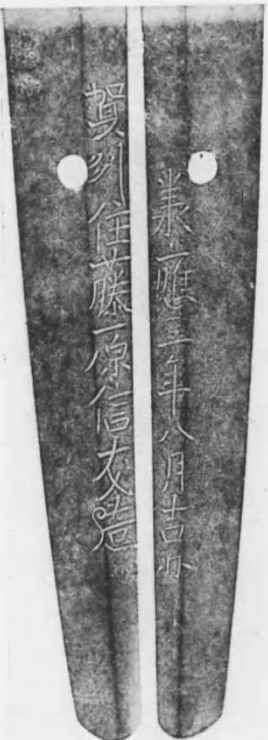 賀州住藤原信友造
承應三年八月吉日